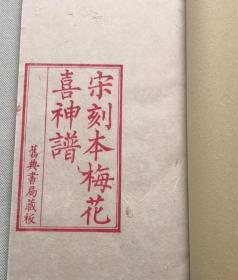 宋刻本梅花
喜神譜
舊典書局藏板